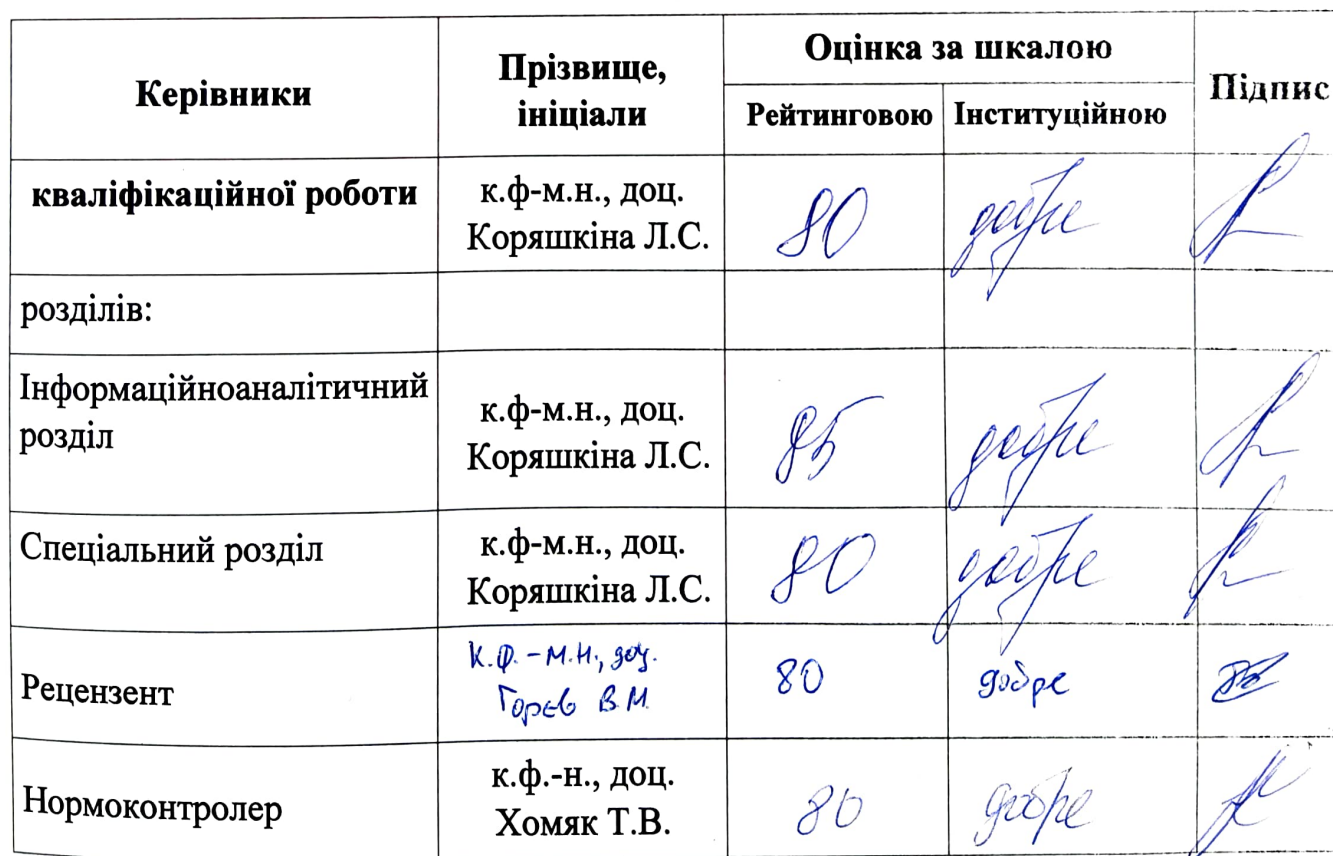 Керівники
Прізвище,
ініціали
Оцінка за шкалою
Підпис
Рейтинговою
Інституційною
кваліфікаційної роботи
к.ф-м.н., доц.
Коряшкіна Л.С.
80
добре
розділів:
Інформаційноаналітичний
розділ
к.ф-м.н., доц.
Коряшкіна Л.С.
85
добре
Спеціальний розділ
к.ф-м.н., доц.
Коряшкіна Л.С.
80
добре
Рецензент
к.ф.-м.н., доц.
Горєв В.М.
80
добре
Нормоконтролер
к.ф.-н., доц.
Хомяк Т.В.
80
добре